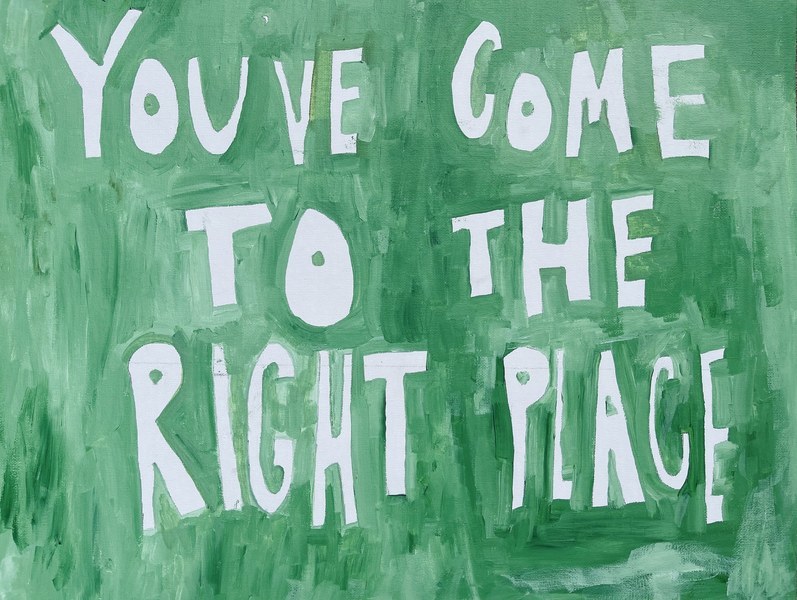 YOUVE COME
TO THE
RIGHT PLACE